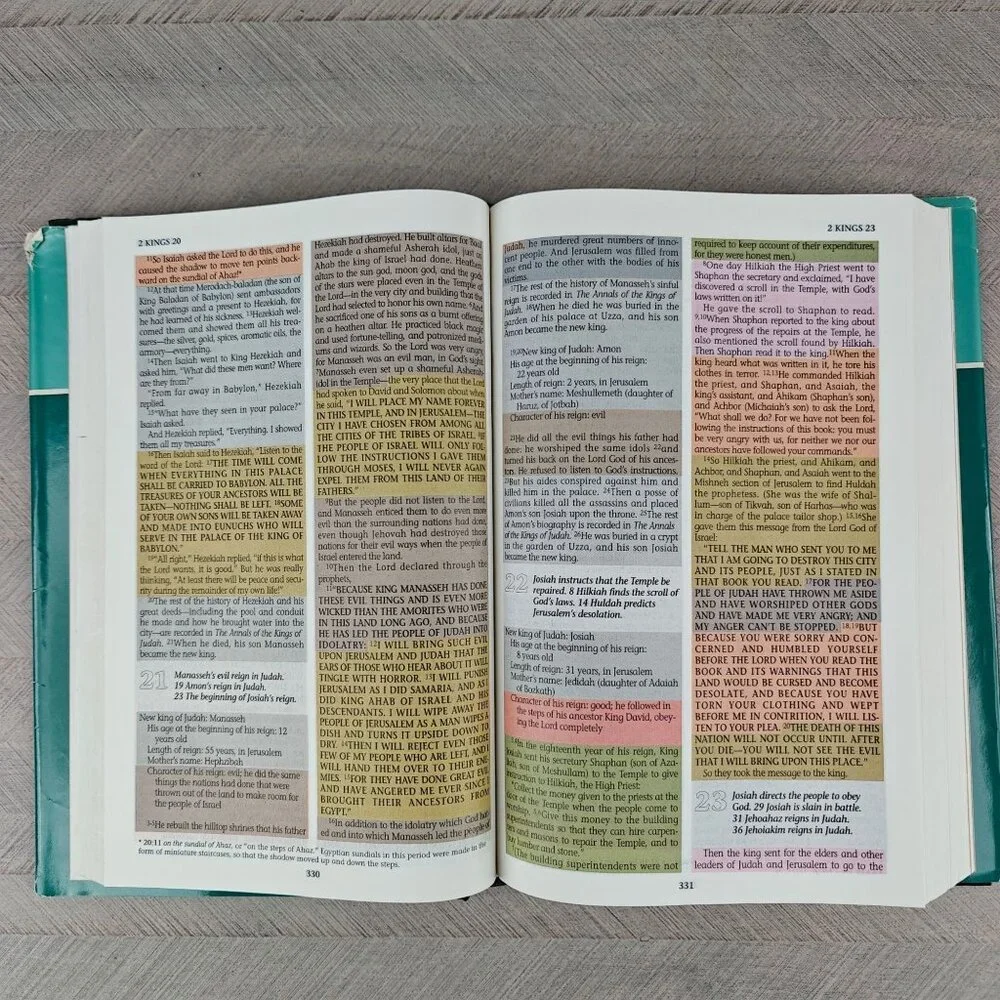 2 KINGS 20
¹¹So Isaiah asked the Lord to do this, and he
caused the shadow to move ten points back-
ward on the sundial of Ahaz!*
¹²At that time Merodach-baladan (the son of
King Baladan of Babylon) sent ambassadors
with greetings and a present to Hezekiah, for
he had learned of his sickness. ¹³Hezekiah wel-
comed them and showed them all his trea-
sures—the silver, gold, spices, aromatic oils, the
armory—everything.
¹⁴Then Isaiah went to King Hezekiah and
asked him, "What did these men want? Where
are they from?"
"From far away in Babylon," Hezekiah
replied.
¹⁵"What have they seen in your palace?"
Isaiah asked.
And Hezekiah replied, "Everything. I showed
them all my treasures."
¹⁶Then Isaiah said to Hezekiah, "Listen to the
word of the Lord: ¹⁷THE TIME WILL COME
WHEN EVERYTHING IN THIS PALACE
SHALL BE CARRIED TO BABYLON. ALL THE
TREASURES OF YOUR ANCESTORS WILL BE
TAKEN—NOTHING SHALL BE LEFT. ¹⁸SOME
OF YOUR OWN SONS WILL BE TAKEN AWAY
AND MADE INTO EUNUCHS WHO WILL
SERVE IN THE PALACE OF THE KING OF
BABYLON."
¹⁹"All right," Hezekiah replied, "if this is what
the Lord wants, it is good." But he was really
thinking, "At least there will be peace and secu-
rity during the remainder of my own life!"
²⁰The rest of the history of Hezekiah and his
great deeds—including the pool and conduit
he made and how he brought water into the
city—are recorded in The Annals of the Kings of
Judah. ²¹When he died, his son Manasseh
became the new king.
21 Manasseh's evil reign in Judah.
19 Amon's reign in Judah.
23 The beginning of Josiah's reign.
New king of Judah: Manasseh
His age at the beginning of his reign: 12
years old
Length of reign: 55 years, in Jerusalem
Mother's name: Hephzibah
Character of his reign: evil; he did the same
things the nations had done that were
thrown out of the land to make room for
the people of Israel
³⁻⁵He rebuilt the hilltop shrines that his father
Hezekiah had destroyed. He built altars for Baal
and made a shameful Asherah idol, just as
Ahab the king of Israel had done. Heathen
altars to the sun god, moon god, and the gods
of the stars were placed even in the Temple of
the Lord—in the very city and building that the
Lord had selected to honor his own name. ⁶And
he sacrificed one of his sons as a burnt offering
on a heathen altar. He practiced black magic
and used fortune-telling, and patronized medi-
ums and wizards. So the Lord was very angry,
for Manasseh was an evil man, in God's sight.
⁷Manasseh even set up a shameful Asherah-
idol in the Temple—the very place that the Lord
had spoken to David and Solomon about when
he said, "I WILL PLACE MY NAME FOREVER
IN THIS TEMPLE, AND IN JERUSALEM—THE
CITY I HAVE CHOSEN FROM AMONG ALL
THE CITIES OF THE TRIBES OF ISRAEL. ⁸IF
THE PEOPLE OF ISRAEL WILL ONLY FOL-
LOW THE INSTRUCTIONS I GAVE THEM
THROUGH MOSES, I WILL NEVER AGAIN
EXPEL THEM FROM THIS LAND OF THEIR
FATHERS."
⁹But the people did not listen to the Lord,
and Manasseh enticed them to do even more
evil than the surrounding nations had done,
even though Jehovah had destroyed those
nations for their evil ways when the people of
Israel entered the land.
¹⁰Then the Lord declared through the
prophets,
¹¹"BECAUSE KING MANASSEH HAS DONE
THESE EVIL THINGS AND IS EVEN MORE
WICKED THAN THE AMORITES WHO WERE
IN THIS LAND LONG AGO, AND BECAUSE
HE HAS LED THE PEOPLE OF JUDAH INTO
IDOLATRY: ¹²I WILL BRING SUCH EVIL
UPON JERUSALEM AND JUDAH THAT THE
EARS OF THOSE WHO HEAR ABOUT IT WILL
TINGLE WITH HORROR. ¹³I WILL PUNISH
JERUSALEM AS I DID SAMARIA, AND AS I
DID KING AHAB OF ISRAEL AND HIS
DESCENDANTS. I WILL WIPE AWAY THE
PEOPLE OF JERUSALEM AS A MAN WIPES A
DISH AND TURNS IT UPSIDE DOWN TO
DRY. ¹⁴THEN I WILL REJECT EVEN THOSE
FEW OF MY PEOPLE WHO ARE LEFT, AND I
WILL HAND THEM OVER TO THEIR ENE-
MIES. ¹⁵FOR THEY HAVE DONE GREAT EVIL
AND HAVE ANGERED ME EVER SINCE I
BROUGHT THEIR ANCESTORS FROM
EGYPT."
¹⁶In addition to the idolatry which God hat-
ed and into which Manasseh led the people of
* 20:11 on the sundial of Ahaz, or "on the steps of Ahaz." Egyptian sundials in this period were made in the
form of miniature staircases, so that the shadow moved up and down the steps.
330
2 KINGS 23
Judah, he murdered great numbers of inno-
cent people. And Jerusalem was filled from
one end to the other with the bodies of his
victims.
¹⁷The rest of the history of Manasseh's sinful
reign is recorded in The Annals of the Kings of
Judah. ¹⁸When he died he was buried in the
garden of his palace at Uzza, and his son
Amon became the new king.
¹⁹,²⁰New king of Judah: Amon
His age at the beginning of his reign:
22 years old
Length of reign: 2 years, in Jerusalem
Mother's name: Meshullemeth (daughter of
Haruz, of Jotbah)
Character of his reign: evil
²¹He did all the evil things his father had
done: he worshiped the same idols ²²and
turned his back on the Lord God of his ances-
tors. He refused to listen to God's instructions.
²³But his aides conspired against him and
killed him in the palace. ²⁴Then a posse of
civilians killed all the assassins and placed
Amon's son Josiah upon the throne. ²⁵The rest
of Amon's biography is recorded in The Annals
of the Kings of Judah. ²⁶He was buried in a crypt
in the garden of Uzza, and his son Josiah
became the new king.
22 Josiah instructs that the Temple be
repaired. 8 Hilkiah finds the scroll of
God's laws. 14 Huldah predicts
Jerusalem's desolation.
New king of Judah: Josiah
His age at the beginning of his reign:
8 years old
Length of reign: 31 years, in Jerusalem
Mother's name: Jedidah (daughter of Adaiah
of Bozkath)
Character of his reign: good; he followed in
the steps of his ancestor King David, obey-
ing the Lord completely
³,⁴In the eighteenth year of his reign, King
Josiah sent his secretary Shaphan (son of Aza-
liah, son of Meshullam) to the Temple to give
instruction to Hilkiah, the High Priest:
"Collect the money given to the priests at the
door of the Temple when the people come to
worship. ⁵,⁶Give this money to the building
superintendents so that they can hire carpen-
ters and masons to repair the Temple, and to
buy lumber and stone."
⁷(The building superintendents were not
required to keep account of their expenditures,
for they were honest men.)
⁸One day Hilkiah the High Priest went to
Shaphan the secretary and exclaimed, "I have
discovered a scroll in the Temple, with God's
laws written on it!"
He gave the scroll to Shaphan to read.
⁹,¹⁰When Shaphan reported to the king about
the progress of the repairs at the Temple, he
also mentioned the scroll found by Hilkiah.
Then Shaphan read it to the king. ¹¹When the
king heard what was written in it, he tore his
clothes in terror. ¹²,¹³He commanded Hilkiah
the priest, and Shaphan, and Asaiah, the
king's assistant, and Ahikam (Shaphan's son),
and Achbor (Michaiah's son) to ask the Lord,
"What shall we do? For we have not been fol-
lowing the instructions of this book: you must
be very angry with us, for neither we nor our
ancestors have followed your commands."
¹⁴So Hilkiah the priest, and Ahikam, and
Achbor, and Shaphan, and Asaiah went to the
Mishneh section of Jerusalem to find Huldah
the prophetess. (She was the wife of Shal-
lum—son of Tikvah, son of Harhas—who was
in charge of the palace tailor shop.) ¹⁵,¹⁶She
gave them this message from the Lord God of
Israel:
"TELL THE MAN WHO SENT YOU TO ME
THAT I AM GOING TO DESTROY THIS CITY
AND ITS PEOPLE, JUST AS I STATED IN
THAT BOOK YOU READ. ¹⁷FOR THE PEO-
PLE OF JUDAH HAVE THROWN ME ASIDE
AND HAVE WORSHIPED OTHER GODS
AND HAVE MADE ME VERY ANGRY; AND
MY ANGER CAN'T BE STOPPED. ¹⁸,¹⁹BUT
BECAUSE YOU WERE SORRY AND CON-
CERNED AND HUMBLED YOURSELF
BEFORE THE LORD WHEN YOU READ THE
BOOK AND ITS WARNINGS THAT THIS
LAND WOULD BE CURSED AND BECOME
DESOLATE, AND BECAUSE YOU HAVE
TORN YOUR CLOTHING AND WEPT
BEFORE ME IN CONTRITION, I WILL LIS-
TEN TO YOUR PLEA. ²⁰THE DEATH OF THIS
NATION WILL NOT OCCUR UNTIL AFTER
YOU DIE—YOU WILL NOT SEE THE EVIL
THAT I WILL BRING UPON THIS PLACE."
So they took the message to the king.
23 Josiah directs the people to obey
God. 29 Josiah is slain in battle.
31 Jehoahaz reigns in Judah.
36 Jehoiakim reigns in Judah.
Then the king sent for the elders and other
leaders of Judah and Jerusalem to go to the
331